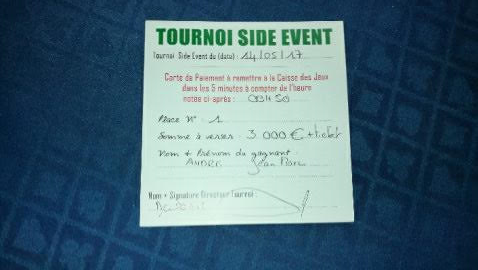 TOURNOI SIDE EVENT
Tournoi Side Event du (date) : 14/05/17
Carte de Paiement à remettre à la Caisse des Jeux
dans les 5 minutes à compter de l'heure
notée ci-après :
Place N° : 1
Somme à verser : 3 000 € + ticket
Nom + Prénom du gagnant :
ANDRE Jean Marc
Nom + Signature Directeur Tournoi :